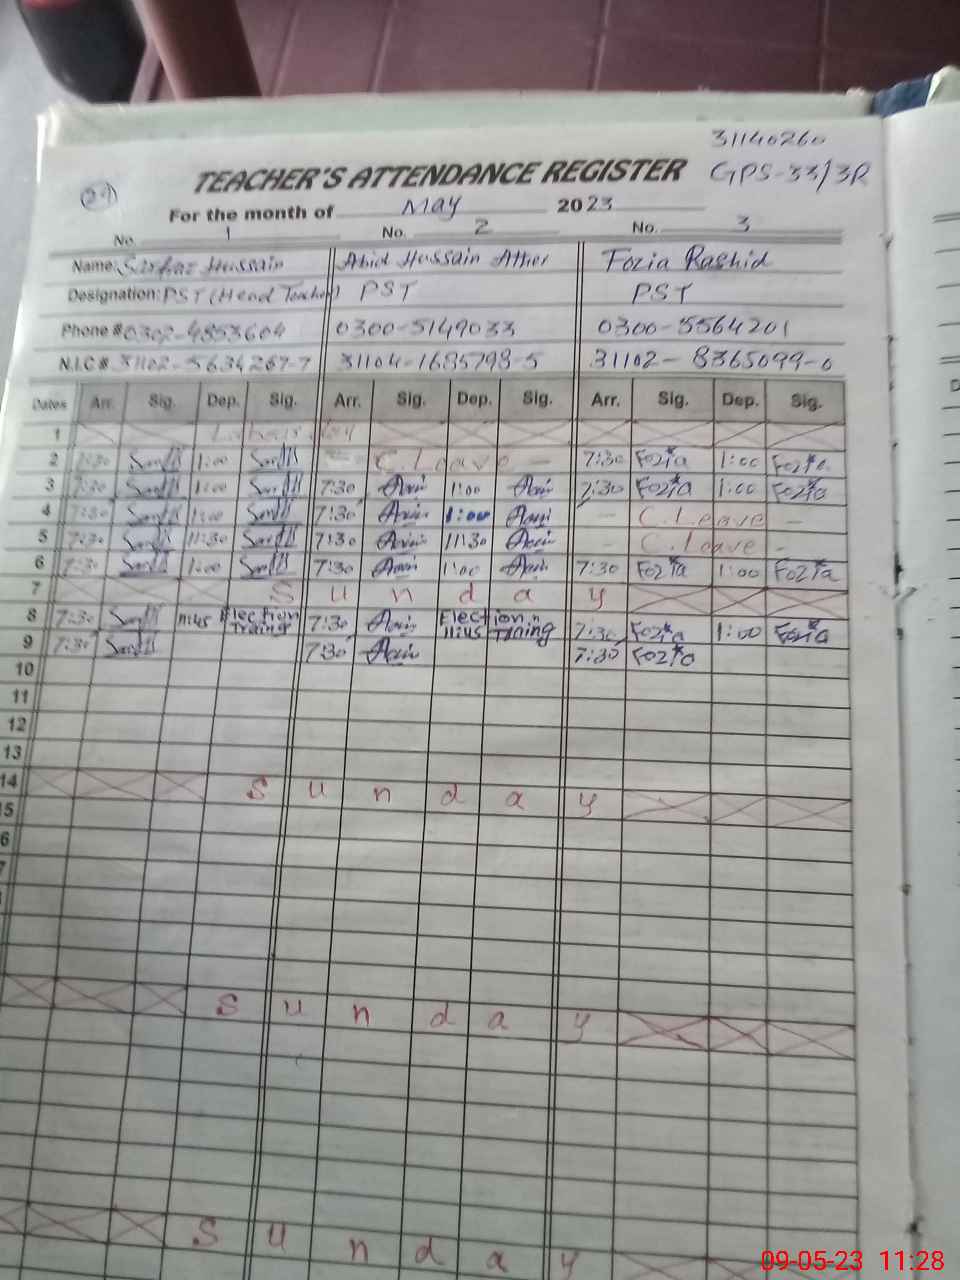 31140260
TEACHER'S ATTENDANCE REGISTER GPS-33/3R
29
For the month of May 2023
No. 1 No. 2 No. 3
Name: Sarfraz Hussain Abid Hussain Ather Fozia Rashid
Designation: PST (Head Teacher) PST PST
Phone # 0302-4853604 0300-5149033 0300-5564201
N.I.C # 31102-5634267-7 31104-1685798-5 31102-8365099-0
Dates Arr. Sig. Dep. Sig. Arr. Sig. Dep. Sig. Arr. Sig. Dep. Sig.
1 Labour day
2 7:30 1:00 C. Leave 7:30 Fozia 1:00 Fozia
3 7:30 1:00 7:30 1:00 7:30 Fozia 1:00 Fozia
4 7:30 1:00 7:30 1:00 C. Leave
5 7:30 11:30 7:30 11:30 C. Leave
6 7:30 1:00 7:30 1:00 7:30 Fozia 1:00 Fozia
7 Sunday
8 7:30 11:45 Election 7:30 Election 11:45 7:30 Fozia 1:00 Fozia
9 7:30 7:30 7:30 Fozia
10
11
12
13
14 Sunday
5
6
7
Sunday
Sunday
09-05-23 11:28